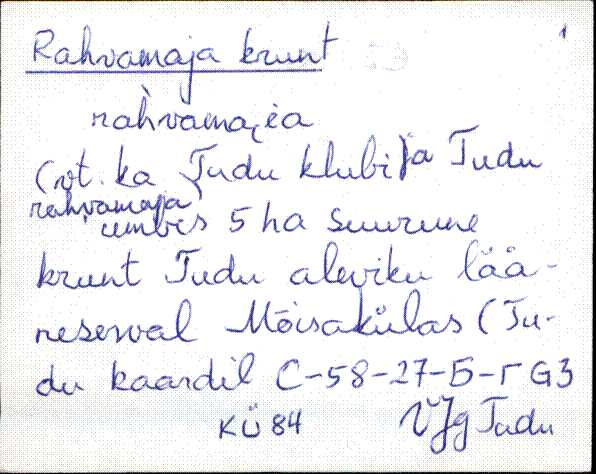 Rahvamaja krunt 1
ràhvamaịa
(vt. ka Tudu klubi ja Tudu
rahvamaja)
umbes 5 ha suurune
krunt Tudu aleviku lää-
neserval Mõisakülas (Tu-
du kaardil C-58-27-Б-Г G3
KÜ 84 VJg Tudu